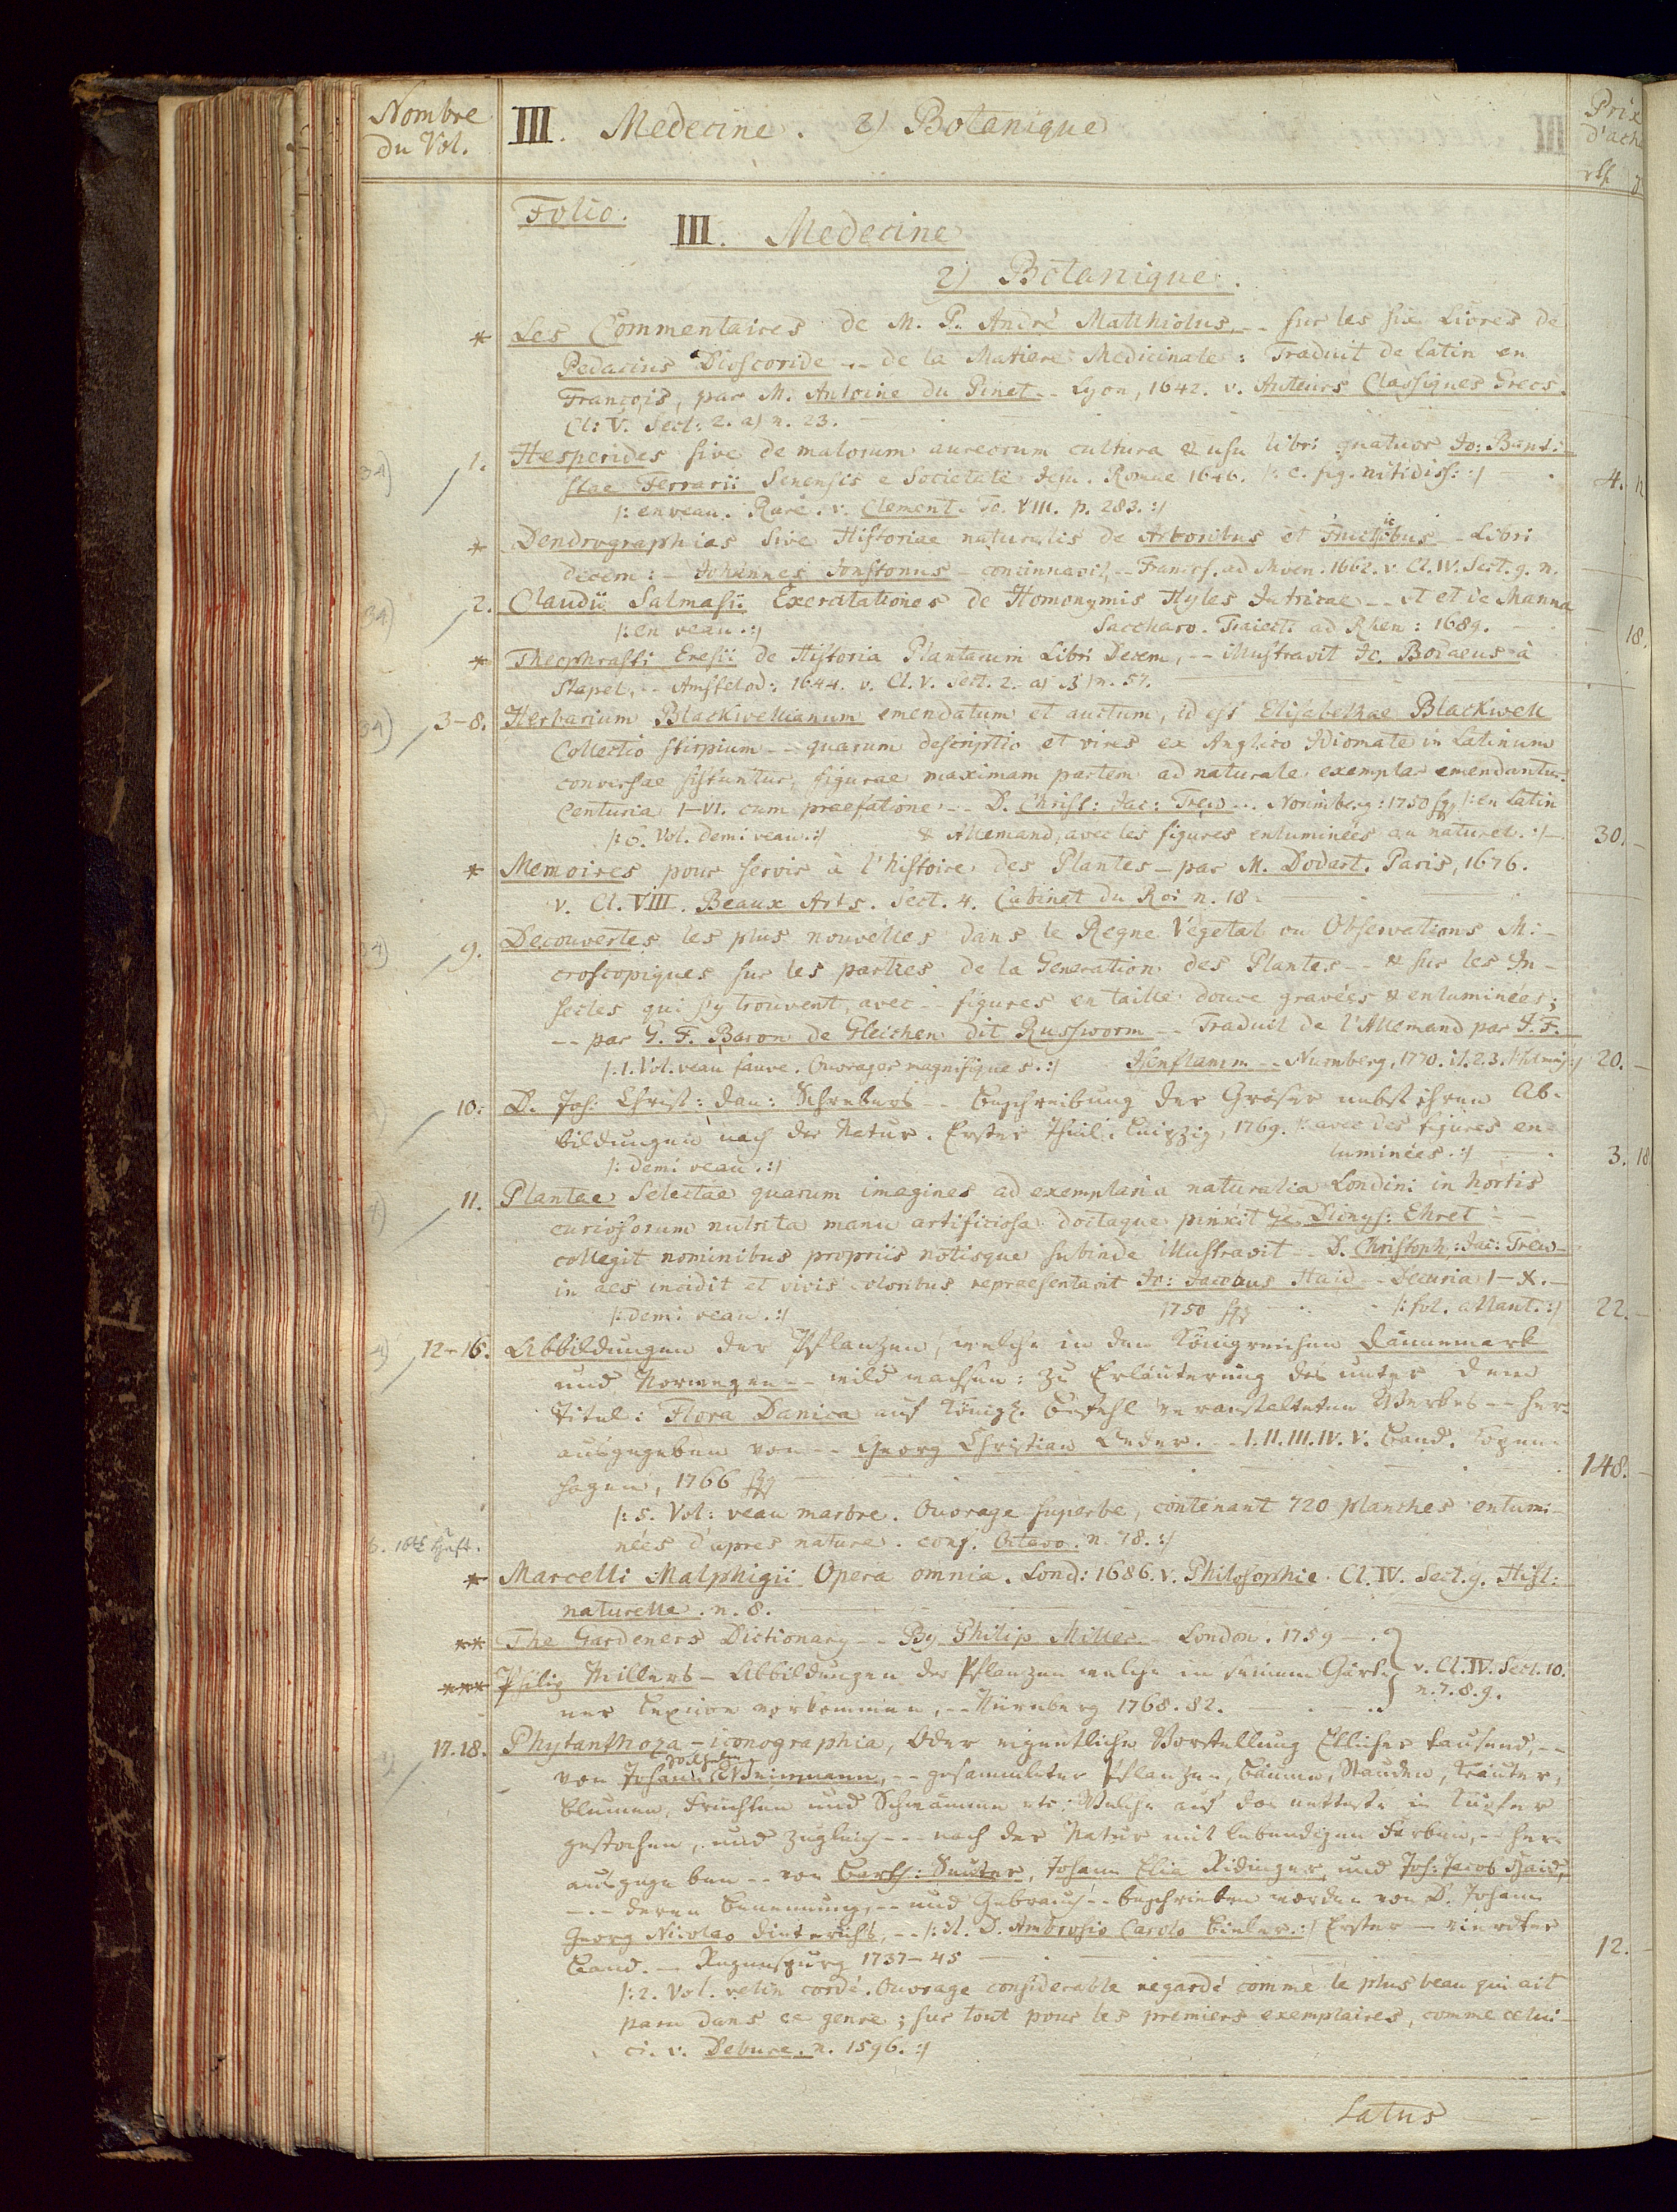 Nombre du Vol.
III. Medecine. 2) Botanique
Prix d'ach
Folio.
III. Medecine
2) Botanique.
* Les Commentaires de M. P. André Matthiolus, -- sur les six Livres de
Pedacius Dioscoride -- de la Matiere Medicinale: Traduit de Latin en
François, par M. Antoine du Pinet -- Lyon, 1642. v. Auteurs Classiques Grecs.
Cl: V. Sect: 2. a) n. 23.
34) 1. Hesperides sive de malorum aureorum cultura & usu libri quatuor Jo: Bapt:
stae Ferrarii Senensis e Societate Jesu. Romae 1646. /: c. fig. nitidiss: :/ 4.
/: en veau. Rare. v. Clement. To. VIII. p. 283. :/
* Dendrographias sive Historiae naturalis de Arboribus et Fructicibus -- Libri
decem: - Johannes Jonstonus - concinnavit, -- Francf. ad Moen. 1662. v. Cl. IV. Sect. 9. n.
34) 2. Claudii Salmasii Exercitationes de Homonymis Hyles Jatricae -- et de Manna
/: en veau. :/ Saccharo. Traiect: ad Rhen: 1689. 18.
* Theophrasti Eresii de Historia Plantarum Libri Decem, -- illustravit Jo. Bodaeus à
Stapel, -- Amstelod: 1644. v. Cl. V. Sect. 2. a) n. 57.
34) 3-8. Herbarium Blackwellianum emendatum et auctum, id est Elisabethae Blackwell
Collectio stirpium -- quarum descriptio et vires ex Anglico Idiomate in Latinum
conversae sistuntur, figurae maximam partem ad naturale exemplar emendantur.
Centuria I-VI. cum praefatione -- D. Christ: Jac: Trew -- Norimberg: 1750 sqq /: en Latin
/: 6. Vol. demi veau. :/ & Allemand, avec les figures enluminées au naturel. :/ 30.
* Memoires pour servir à l'histoire des Plantes - par M. Dodart. Paris, 1676.
v. Cl. VIII. Beaux Arts. Sect. 4. Cabinet du Roi n. 18.
34) 9. Decouvertes les plus nouvelles dans le Regne Végetal ou Observations Mi-
croscopiques sur les parties de la Generation des Plantes -- & sur les In-
sectes qui s'y trouvent, avec -- figures en taille douce gravées & enluminées;
-- par G. F. Baron de Gleichen dit Russworm -- Traduit de l'Allemand par J. F.
/: 1. Vol. veau fauve. Ouvrages magnifiques. :/ Isenflamm -- Nurnberg, 1770. 20.
10. D. Joh: Christ: Dan: Schrebers -- Beschreibung der Gräser nebst ihren Ab-
bildungen nach der Natur. Erster Theil. Leipzig, 1769. /: avec des figures en-
/: demi veau. :/ luminées. :/ 3. 18
11. Plantae Selectae quarum imagines ad exemplaria naturalia Londini in hortis
curiosorum nutrita manu artificiosa doctaque pinxit Ge. Dionys: Ehret --
collegit nominibus propriis notisque subinde illustravit -- D. Christoph: Jac: Trew -
in aes incidit et vivis coloribus repraesentavit Jo: Jacobus Haid -- Decuria I-X. -
/: demi veau. :/ 1750 sqq /: fol. atlant. :/ 22.
12-16. Abbildungen der Pflanzen, welche in den Königreichen Dännemark
und Norwegen -- wild wachsen: zu Erläuterung des unter dem
Titul: Flora Danica auf Königl. Befehl veranstalteten Werkes -- her-
ausgegeben von -- Georg Christian Oeder. -- I. II. III. IV. V. Band. Copen-
hagen, 1766 sqq 148.
/: 5. Vol: veau marbre. Ouvrage superbe, contenant 720 planches enlumi-
nées d'apres nature. conf. Octavo. n. 78. :/
18tes Heft.
* Marcelli Malphigii Opera omnia. Lond: 1686. v. Philosophie. Cl. IV. Sect. 9. Hist:
naturelle. n. 8.
** The Gardeners Dictionary -- By Philip Miller - London. 1759
*** Philip Millers - Abbildungen der Pflanzen welche in seinem Gärt- v. Cl. IV. Sect. 10.
ner Lexicon vorkommen, -- Nürnberg 1768. 82. n. 7. 8. 9.
17. 18. Phytanthoza - iconographia, Oder eigentliche Vorstellung Etlicher tausend, --
von Johann Wilhelm Weinmann, -- gesammleter Pflanzen, Bäume, Stauden, Kräuter,
Blumen, Früchten und Schwämme etc: Welche auf das netteste in Kupfer
gestochen, und zugleich -- nach der Natur mit lebendigen Farben, -- her-
ausgegeben -- von Barth: Seuter, Johann Elia Ridinger und Joh: Jacob Haid,
-- deren Benennung, -- und Gebrauch -- beschrieben worden von D. Johann
Georg Nicolao Dieterichs, -- /: it. D. Ambrosio Carolo Bieler. :/ Erster - vierdter
Band. - Regenspurg 1737-45 12.
/: 2. Vol. velin cordé. Ouvrage considerable regardé comme le plus beau qui ait
paru dans ce genre; sur tout pour les premiers exemplaires, comme celui-
ci. v. Debure. n. 1596. :/
Latus